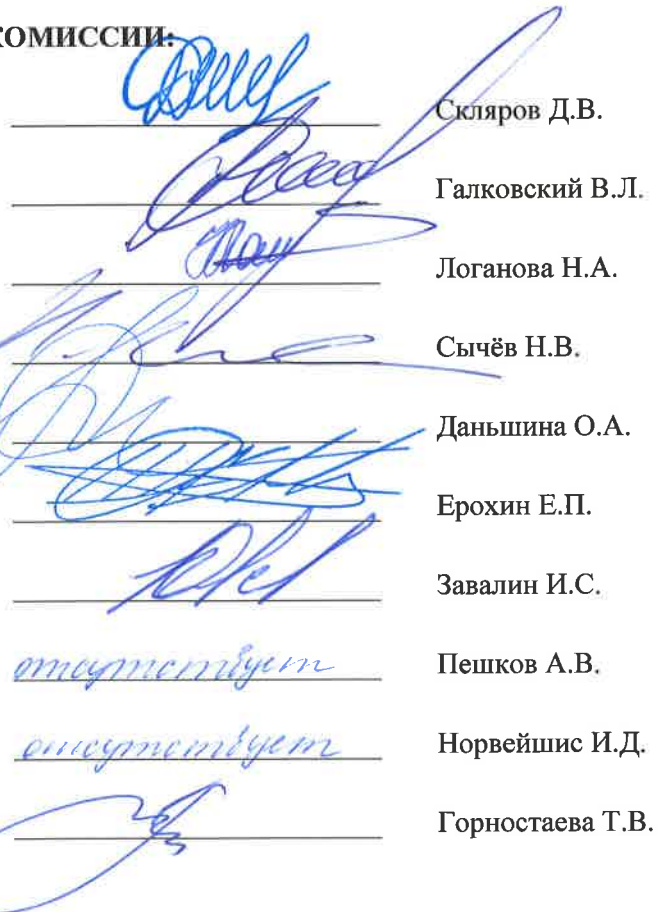 КОМИССИИ:
Скляров Д.В.
Галковский В.Л.
Логанова Н.А.
Сычёв Н.В.
Даньшина О.А.
Ерохин Е.П.
Завалин И.С.
отсутствует Пешков А.В.
отсутствует Норвейшис И.Д.
Горностаева Т.В.